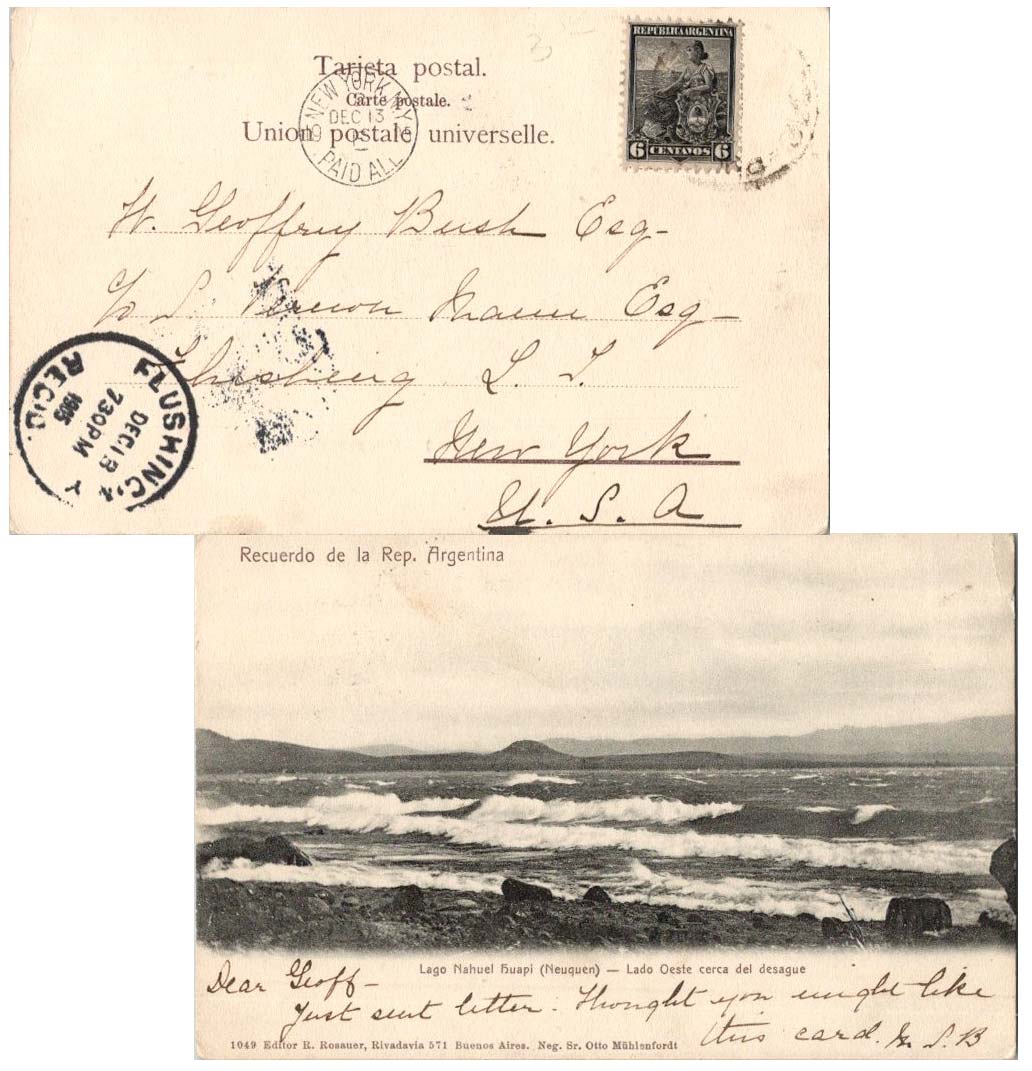 Tarjeta postal.
Carte postale.
Union postale universelle.
REPUBLICA ARGENTINA
6 CENTAVOS 6
NEW YORK, N.Y.
DEC 13
PAID ALL
W. Geoffrey Bush Esq-
c/o S. Vernon Mann Esq-
Flushing L. I.
New York
U. S. A
FLUSHING
DEC 13
730PM
1905
REC'D.
Recuerdo de la Rep. Argentina
Lago Nahuel Huapi (Neuquen) — Lado Oeste cerca del desague
Dear Geoff-
Just sent letter. Thought you might like
this card. S. B
1049 Editor R. Rosauer, Rivadavia 571 Buenos Aires. Neg. Sr. Otto Mühlenfordt